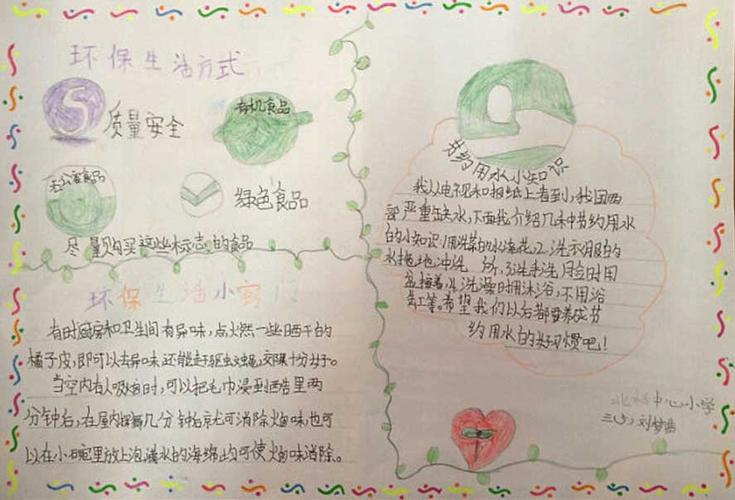 环保生活方式
质量安全
有机食品
无公害食品
绿色食品
尽量购买这些标志的食品
环保生活小窍门
有时厨房和卫生间有异味,点火燃一些晒干的
橘子皮,即可以去异味还能赶驱蚊蝇,效果十分好。
当空内有人吸烟时,可以把毛巾浸到醋里两
分钟后,在屋内挥舞几分钟后就可消除烟味,也可
以在小碗里放上泡满水的海绵均可使烟味消除。
节约用水小知识
我从电视和报纸上看到,我国西
部严重缺水,下面我介绍几种节约用水
的小知识:1.用洗菜的水浇花,2.洗衣服的
水拖地,冲洗 所,3.洗手洗脸时用
盆接着,4.洗澡时用沐浴,不用浴
缸等。希望我们以后都要养成节
约用水的好习惯吧!
中心小学
三(5) 刘